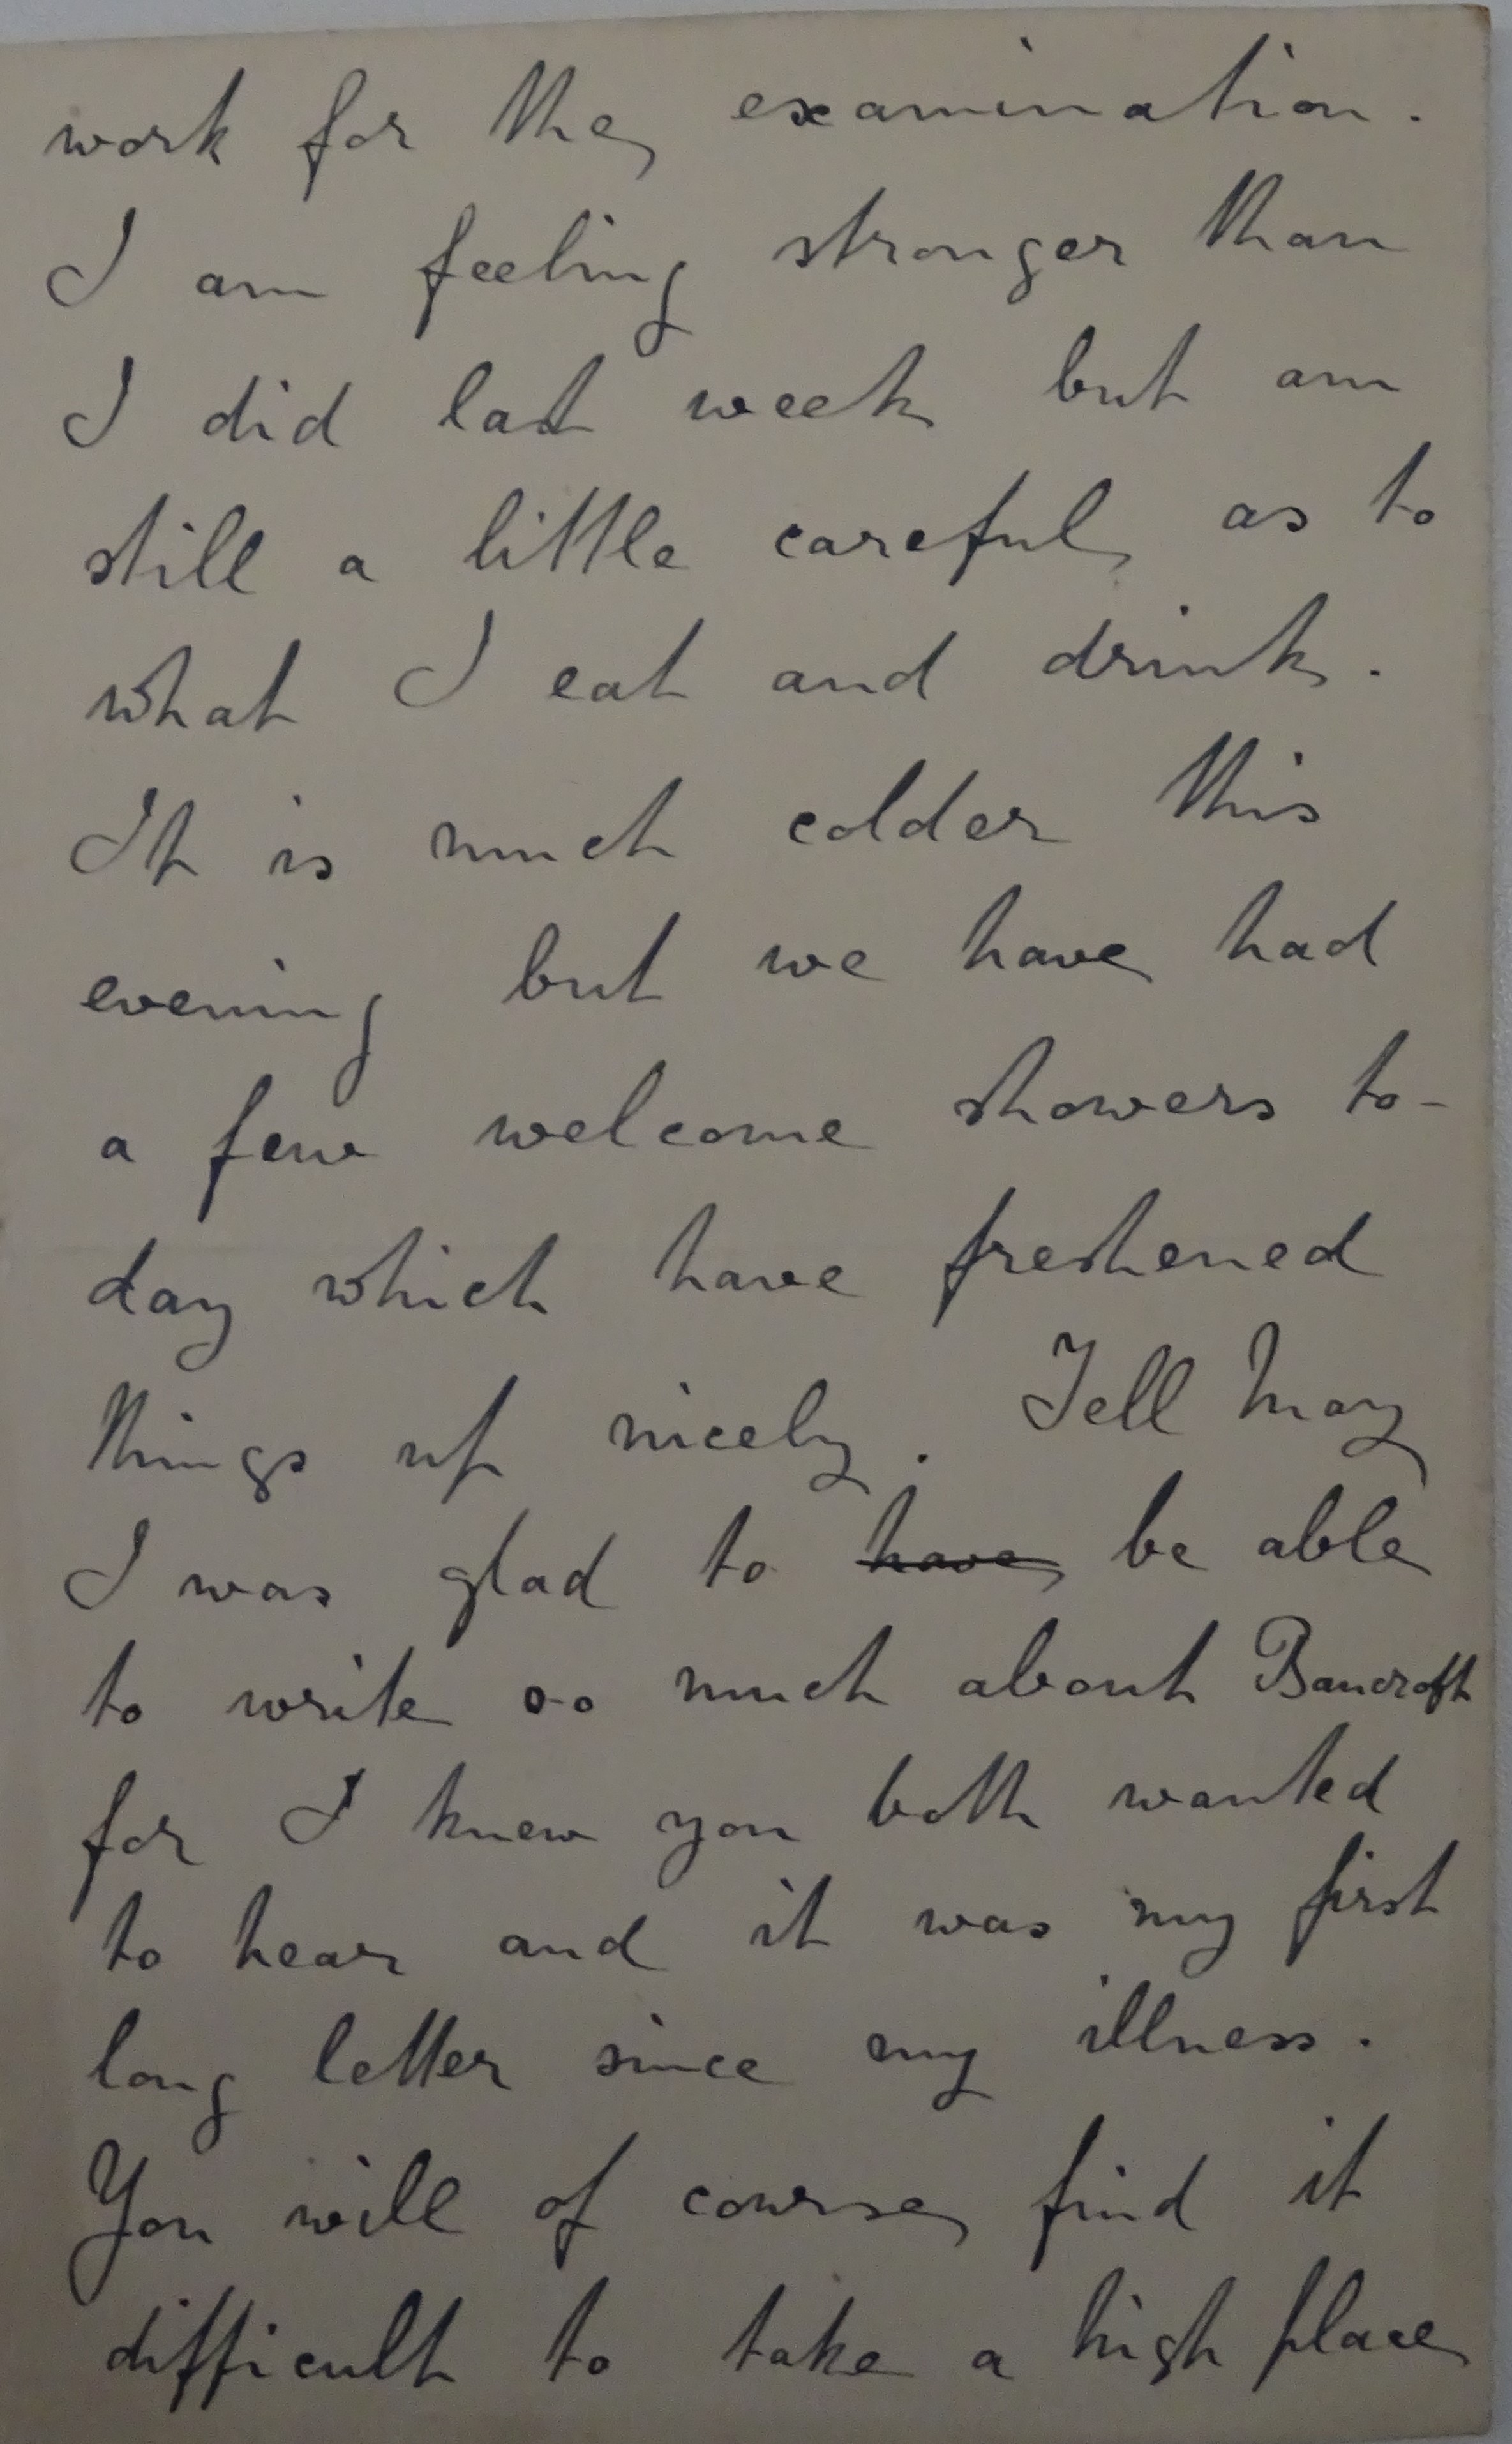 work for the examination.
I am feeling stronger than
I did last week but am
still a little careful as to
what I eat and drink.
It is much colder this
evening but we have had
a few welcome showers to-
day which have freshened
things up nicely. Tell May
I was glad to have be able
to write so much about Bancroft
for I knew you both wanted
to hear and it was my first
long letter since my illness.
You will of course find it
difficult to take a high place